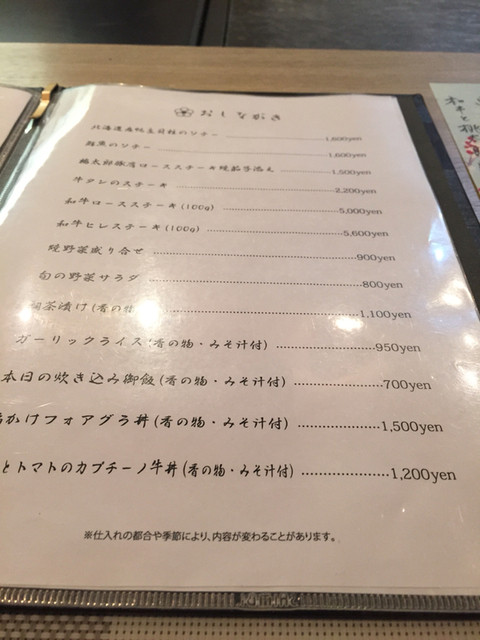 おしながき
北海道産帆立貝柱のソテー 1,600yen
鮮魚のソテー 1,600yen
ロースステーキ焼茄子添え 1,500yen
牛タンのステーキ 2,200yen
和牛ロースステーキ(100g) 5,000yen
和牛ヒレステーキ(100g) 5,600yen
焼野菜盛り合せ 900yen
旬の野菜サラダ 800yen
茶漬け(香の物 1,100yen
ガーリックライス(香の物・みそ汁付) 950yen
本日の炊き込み御飯(香の物・みそ汁付) 700yen
かけフォアグラ丼(香の物・みそ汁付) 1,500yen
とトマトのカプチーノ牛丼(香の物・みそ汁付) 1,200yen
※仕入れの都合や季節により、内容が変わることがあります。